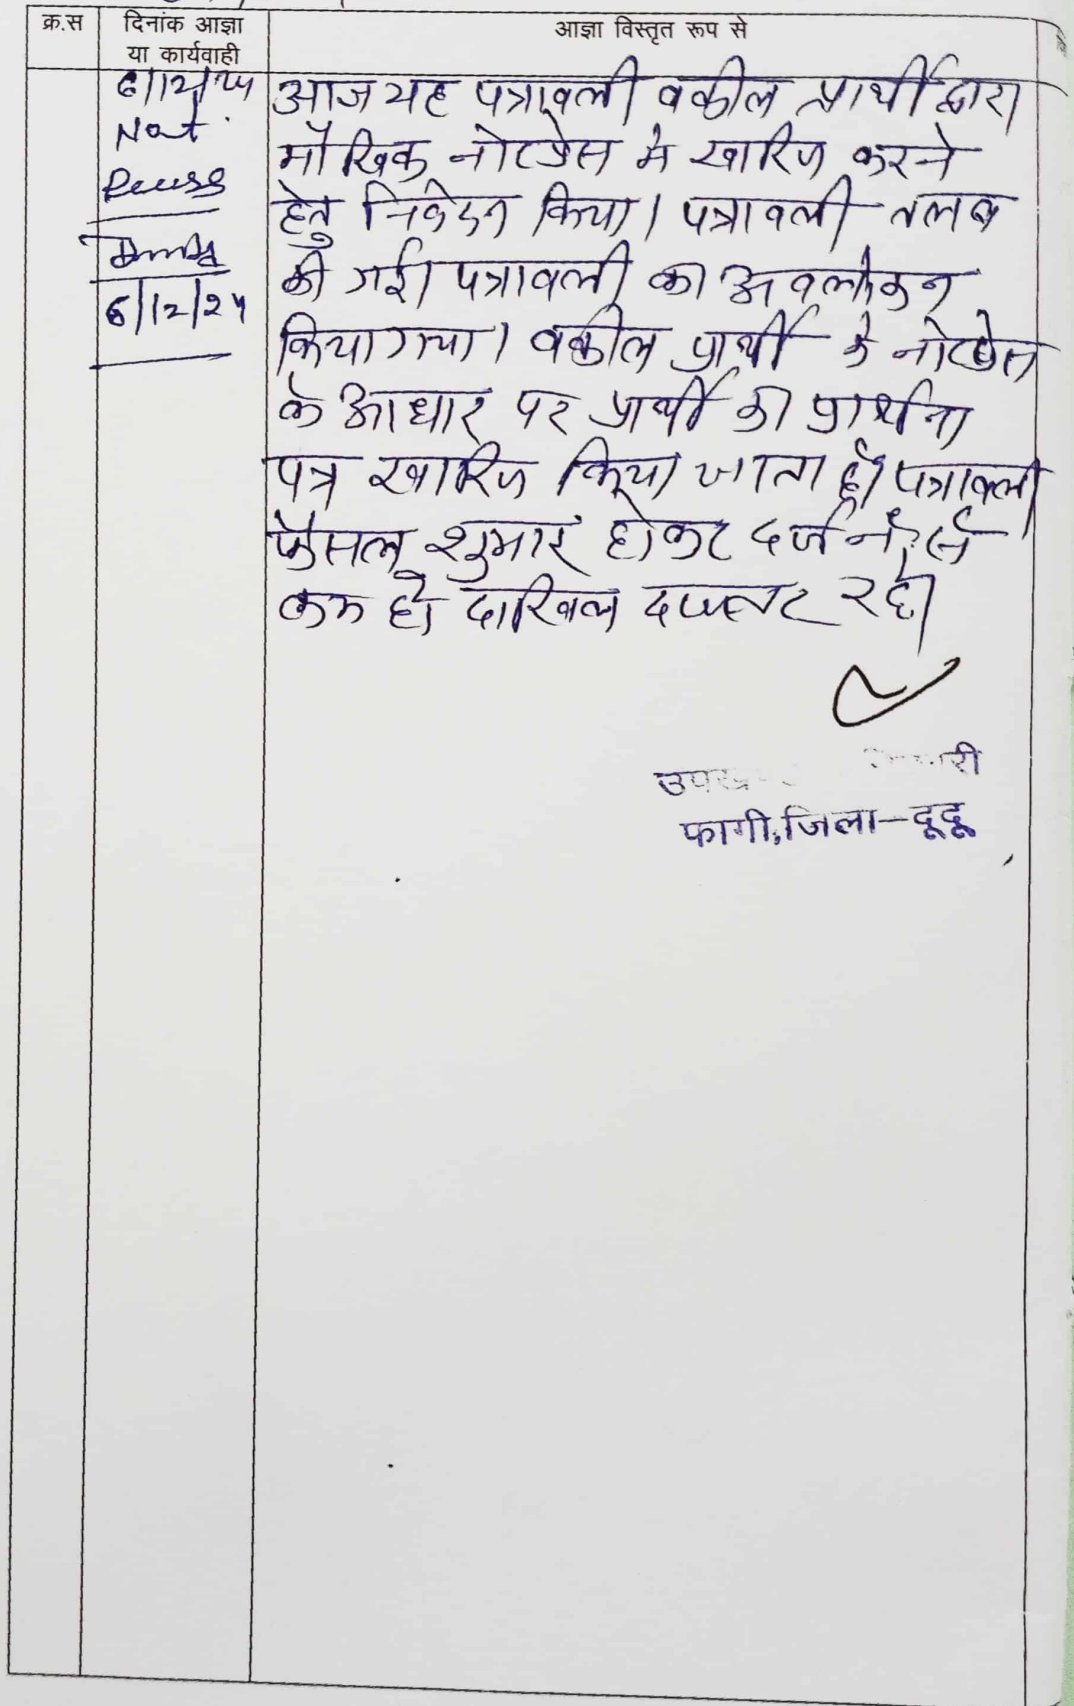 क्र.स
दिनांक आज्ञा
या कार्यवाही
आज्ञा विस्तृत रूप से
6/12/24
Not
Press
6/12/24
आज यह पत्रावली वकील प्रार्थी द्वारा
मौखिक नोटप्रेस मे खारिज करने
हेतु निवेदन किया। पत्रावली तलब
की गई। पत्रावली का अवलोकन
किया गया। वकील प्रार्थी के नोटप्रेस
के आधार पर प्रार्थी का प्रार्थना
पत्र खारिज किया जाता है। पत्रावली
फैसल शुमार होकर दर्ज न. से
कम हो दाखिल दफ्तर रहे।
फागी, जिला-दूदू